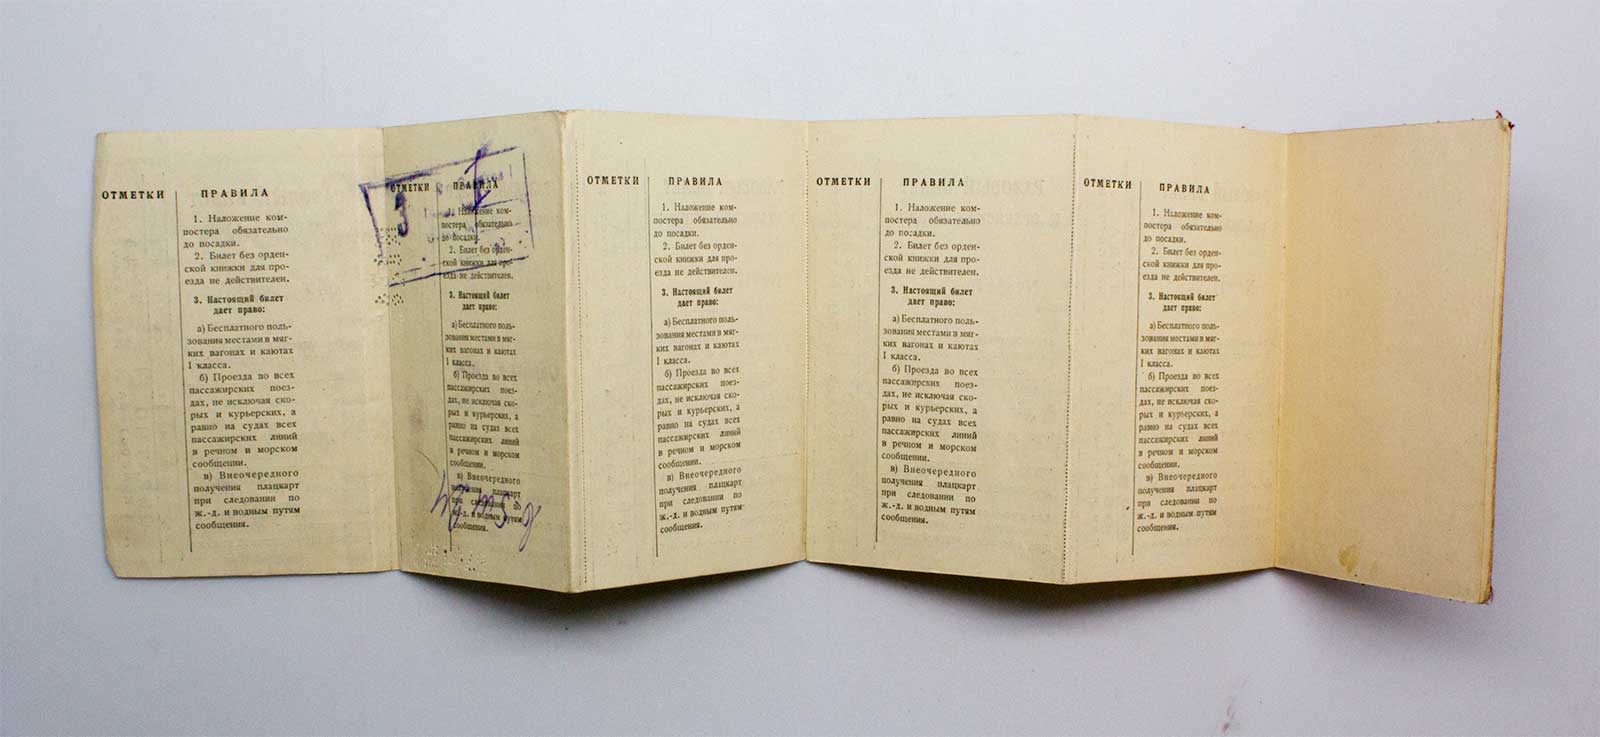 ОТМЕТКИ
ПРАВИЛА
1. Наложение ком-
постера обязательно
до посадки.
2. Билет без орден-
ской книжки для про-
езда не действителен.
3. Настоящий билет
дает право:
а) Бесплатного поль-
зования местами в мяг-
ких вагонах и каютах
I класса.
б) Проезда во всех
пассажирских поез-
дах, не исключая ско-
рых и курьерских, а
равно на судах всех
пассажирских линий
в речном и морском
сообщении.
в) Внеочередного
получения плацкарт
при следовании по
ж.-д. и водным путям
сообщения.
ОТМЕТКИ
ПРАВИЛА
3
1. Наложение ком-
постера обязательно
до посадки.
2. Билет без орден-
ской книжки для про-
езда не действителен.
3. Настоящий билет
дает право:
а) Бесплатного поль-
зования местами в мяг-
ких вагонах и каютах
I класса.
б) Проезда во всех
пассажирских поез-
дах, не исключая ско-
рых и курьерских, а
равно на судах всех
пассажирских линий
в речном и морском
сообщении.
в) Внеочередного
получения плацкарт
при следовании по
ж.-д. и водным путям
сообщения.
ОТМЕТКИ
ПРАВИЛА
1. Наложение ком-
постера обязательно
до посадки.
2. Билет без орден-
ской книжки для про-
езда не действителен.
3. Настоящий билет
дает право:
а) Бесплатного поль-
зования местами в мяг-
ких вагонах и каютах
I класса.
б) Проезда во всех
пассажирских поез-
дах, не исключая ско-
рых и курьерских, а
равно на судах всех
пассажирских линий
в речном и морском
сообщении.
в) Внеочередного
получения плацкарт
при следовании по
ж.-д. и водным путям
сообщения.
ОТМЕТКИ
ПРАВИЛА
1. Наложение ком-
постера обязательно
до посадки.
2. Билет без орден-
ской книжки для про-
езда не действителен.
3. Настоящий билет
дает право:
а) Бесплатного поль-
зования местами в мяг-
ких вагонах и каютах
I класса.
б) Проезда во всех
пассажирских поез-
дах, не исключая ско-
рых и курьерских, а
равно на судах всех
пассажирских линий
в речном и морском
сообщении.
в) Внеочередного
получения плацкарт
при следовании по
ж.-д. и водным путям
сообщения.
ОТМЕТКИ
ПРАВИЛА
1. Наложение ком-
постера обязательно
до посадки.
2. Билет без орден-
ской книжки для про-
езда не действителен.
3. Настоящий билет
дает право:
а) Бесплатного поль-
зования местами в мяг-
ких вагонах и каютах
I класса.
б) Проезда во всех
пассажирских поез-
дах, не исключая ско-
рых и курьерских, а
равно на судах всех
пассажирских линий
в речном и морском
сообщении.
в) Внеочередного
получения плацкарт
при следовании по
ж.-д. и водным путям
сообщения.